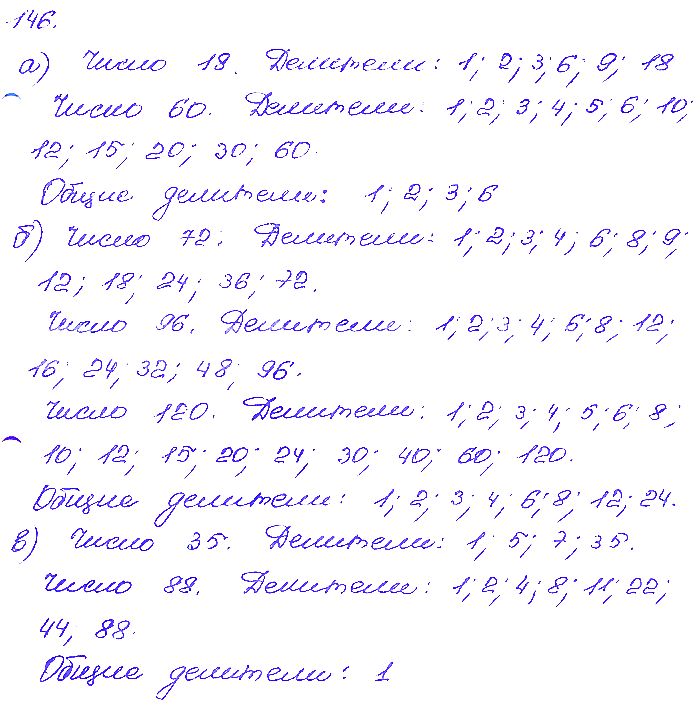 146.
а) Число 18. Делители: 1; 2; 3; 6; 9; 18
Число 60. Делители: 1; 2; 3; 4; 5; 6; 10;
12; 15; 20; 30; 60.
Общие делители: 1; 2; 3; 6
б) Число 72. Делители: 1; 2; 3; 4; 6; 8; 9;
12; 18; 24; 36; 72.
Число 96. Делители: 1; 2; 3; 4; 6; 8; 12;
16; 24; 32; 48; 96.
Число 120. Делители: 1; 2; 3; 4; 5; 6; 8;
10; 12; 15; 20; 24; 30; 40; 60; 120.
Общие делители: 1; 2; 3; 4; 6; 8; 12; 24.
в) Число 35. Делители: 1; 5; 7; 35.
Число 88. Делители: 1; 2; 4; 8; 11; 22;
44, 88.
Общие делители: 1